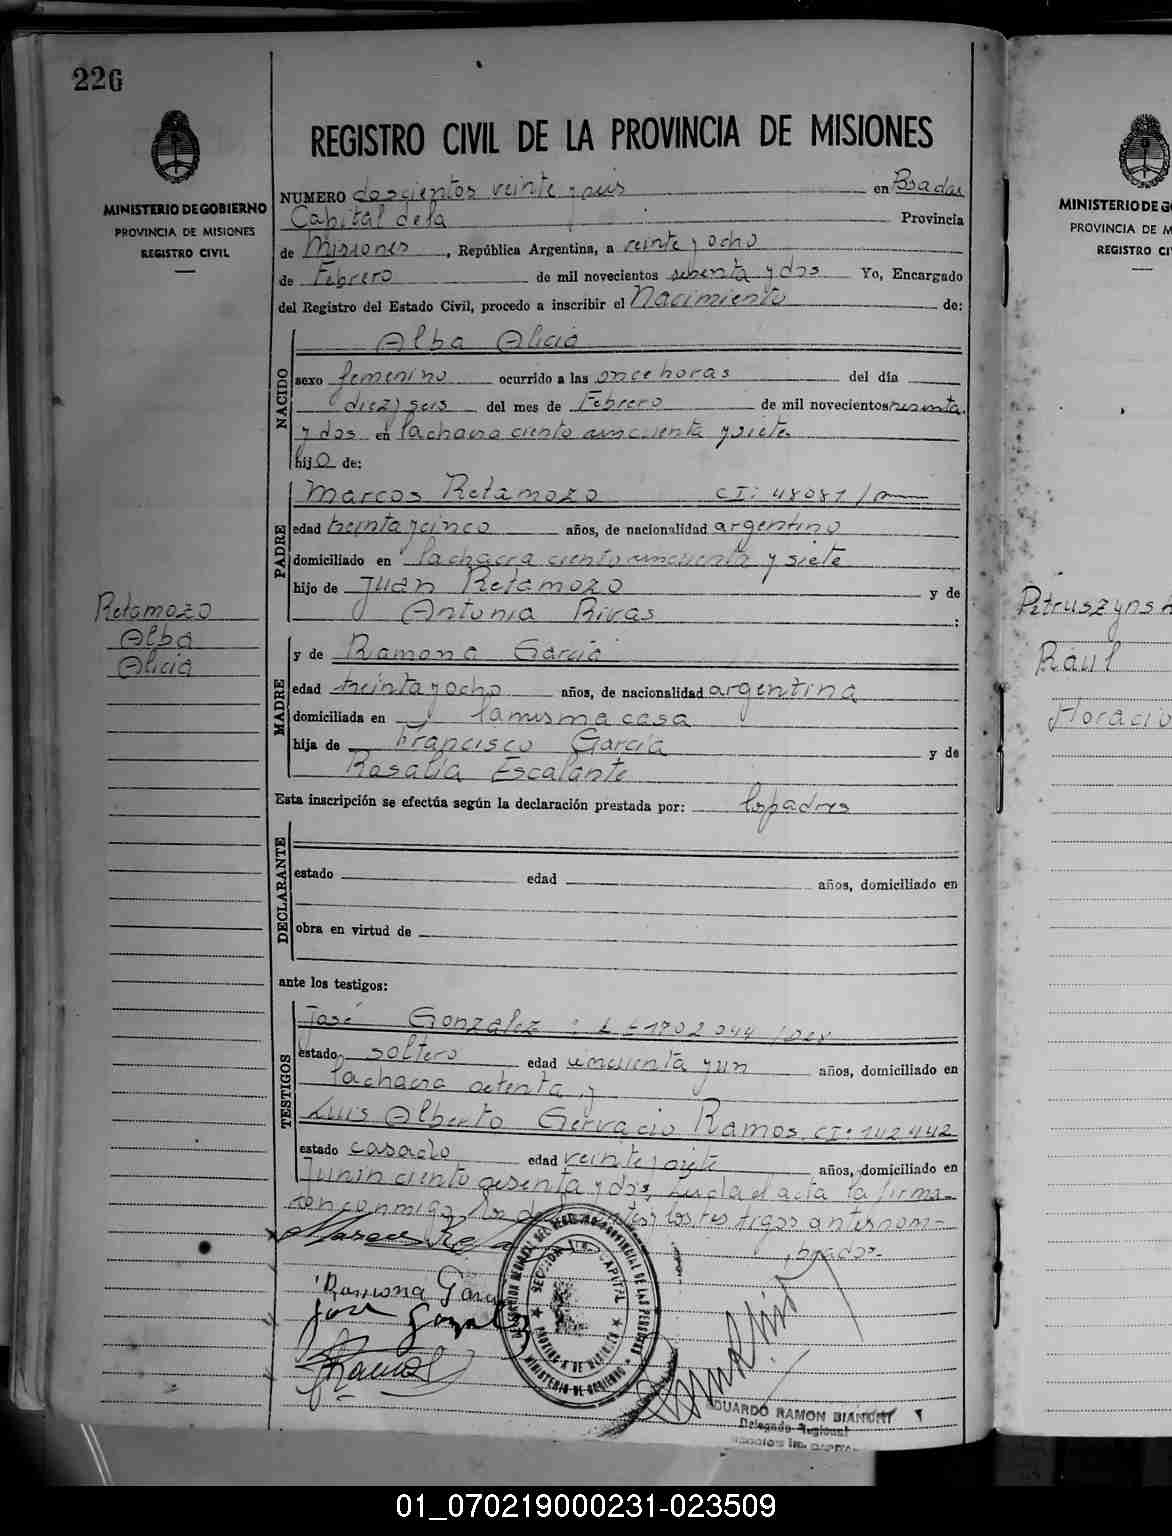 226
MINISTERIO DE GOBIERNO
PROVINCIA DE MISIONES
REGISTRO CIVIL
REGISTRO CIVIL DE LA PROVINCIA DE MISIONES
NUMERO doscientos veinte y seis en Posadas
Capital de la Provincia
de Misiones, República Argentina, a veinte y ocho
de Febrero de mil novecientos setenta y dos Yo, Encargado
del Registro del Estado Civil, procedo a inscribir el Nacimiento de:
NACIDO
Alba Alicia
sexo femenino ocurrido a las once horas del día
diez y seis del mes de Febrero de mil novecientos setenta
y dos en la chacra ciento cincuenta y siete
hijo de:
PADRE
Marcos Retamozo CI: 48081
edad treinta y cinco años, de nacionalidad argentino
domiciliado en la chacra ciento cincuenta y siete
hijo de Juan Retamozo y de
Antonia Rivas :
Retamozo
Alba
Alicia
MADRE
y de Ramona García
edad treinta y ocho años, de nacionalidad argentina
domiciliada en la misma casa
hija de Francisco García y de
Rosalía Escalante
Esta inscripción se efectúa según la declaración prestada por: los padres
DECLARANTE
estado edad años, domiciliado en
obra en virtud de
ante los testigos:
TESTIGOS
José Gonzalez : 1702044
estado soltero edad cincuenta y un años, domiciliado en
la chacra ochenta, y
Luis Alberto Gervacio Ramos. CI: 142442
estado casado edad veinte y siete años, domiciliado en
Junín ciento sesenta y dos, leída el acta la firma-
ron conmigo los y los testigos antes nom-
brados-
Marcos
Ramona García
José Gonzalez
Ramos
SECCION 1ra. CAPITAL
PROVINCIA DE MISIONES
MINISTERIO DE GOBIERNO
EDUARDO RAMON BIANCHI
Delegado Regional
MINISTERIO DE
PROVINCIA DE M
REGISTRO CI
Petruszynsk
Raúl
Horacio
01_070219000231-023509